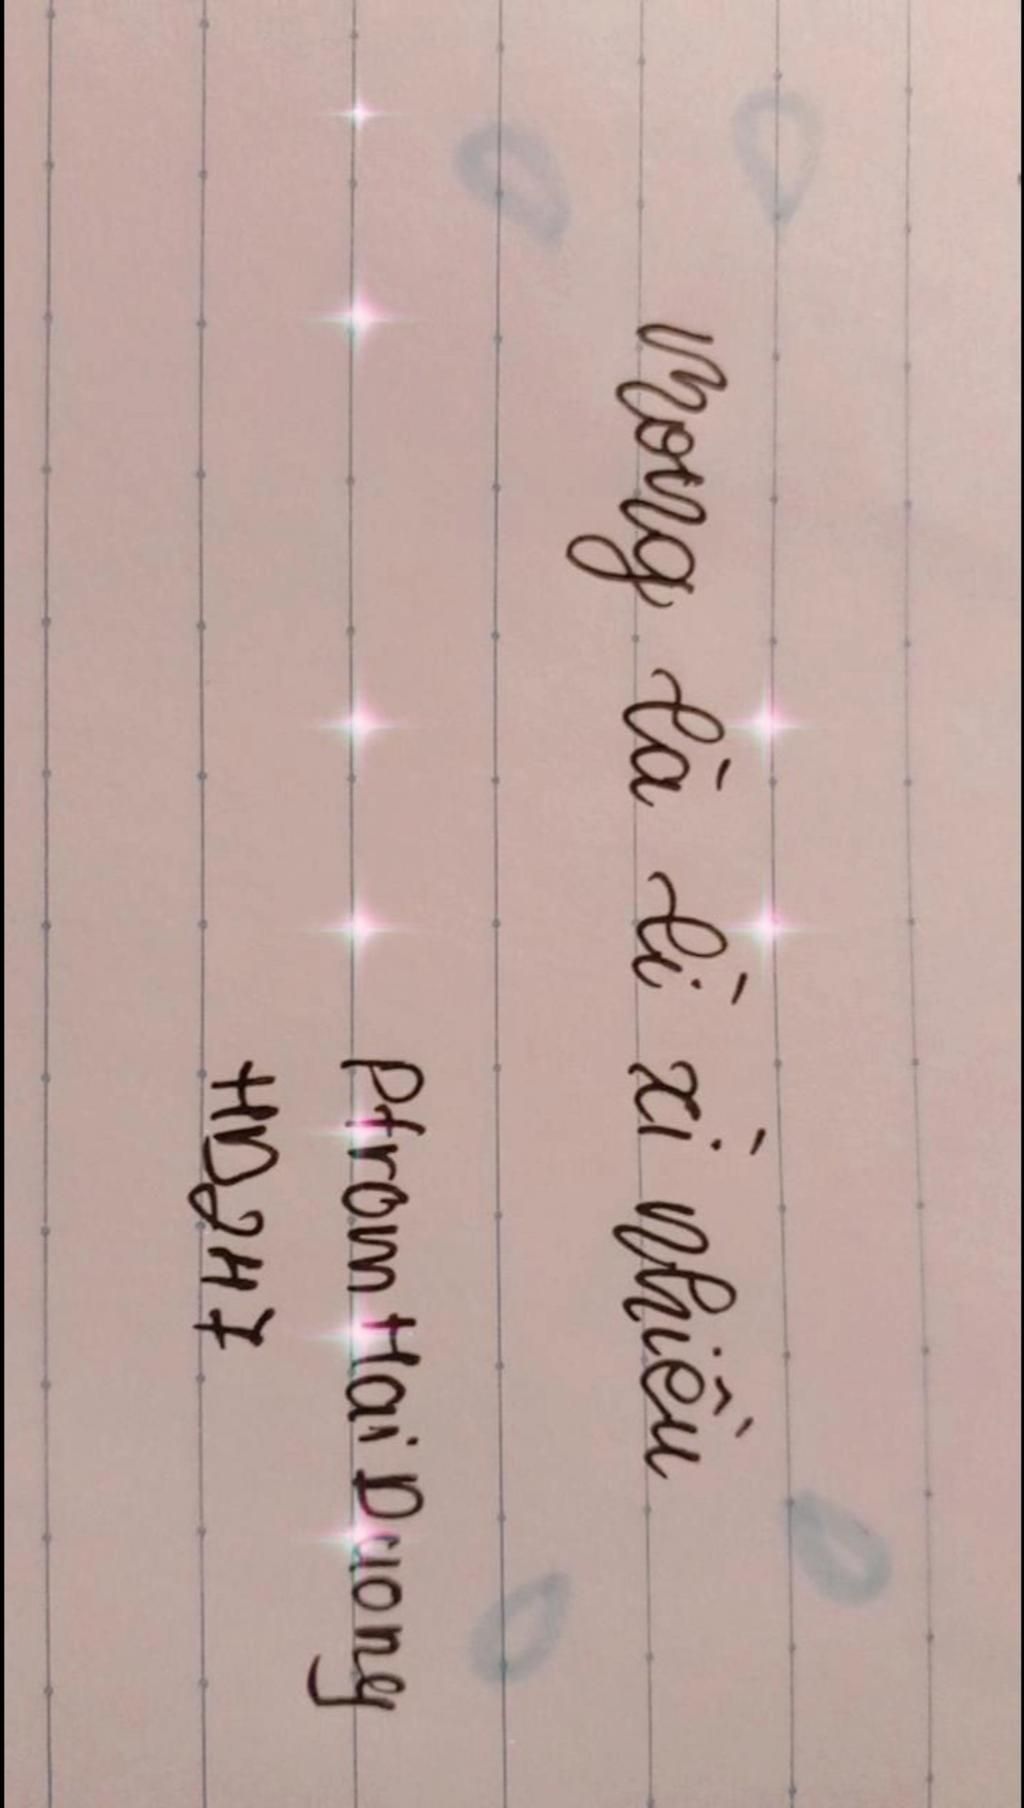 Mong là lì xì nhiều
Pham Hai Duong
HD2k7